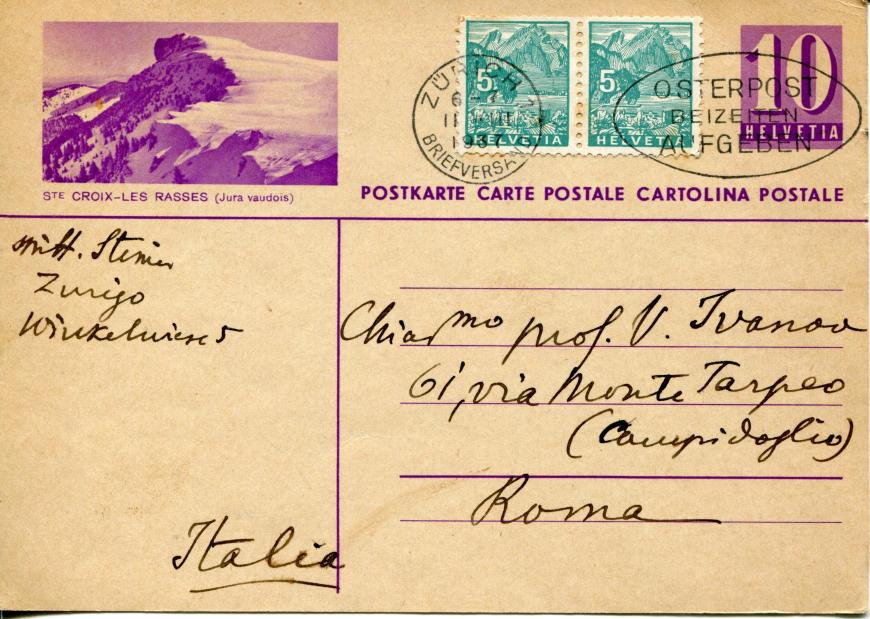 STE CROIX-LES RASSES (Jura vaudois)
5 HELVETIA
5 HELVETIA
10 HELVETIA
ZÜRICH 1
1937
BRIEFVERSAND
OSTERPOST
BEIZEITEN
AUFGEBEN
POSTKARTE CARTE POSTALE CARTOLINA POSTALE
mitt. Steiner
Zurigo
Winkelwiese 5
Chiarmo prof. V. Ivanov
61, via Monte Tarpeo
(Campidoglio)
Roma
Italia